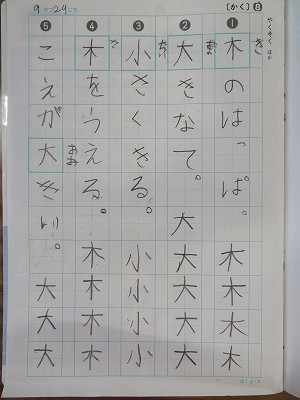 9がつ24にち
【かく】8
やくそく ほか
❶
き
木のはっぱ。
木木木木
❷
おお
大きなて。
大大大大大
❸
ちい
小さくきる。
小小小小
❹
き
木をうえる。
木木木木
❺
こえが大きい。
おお
大大大